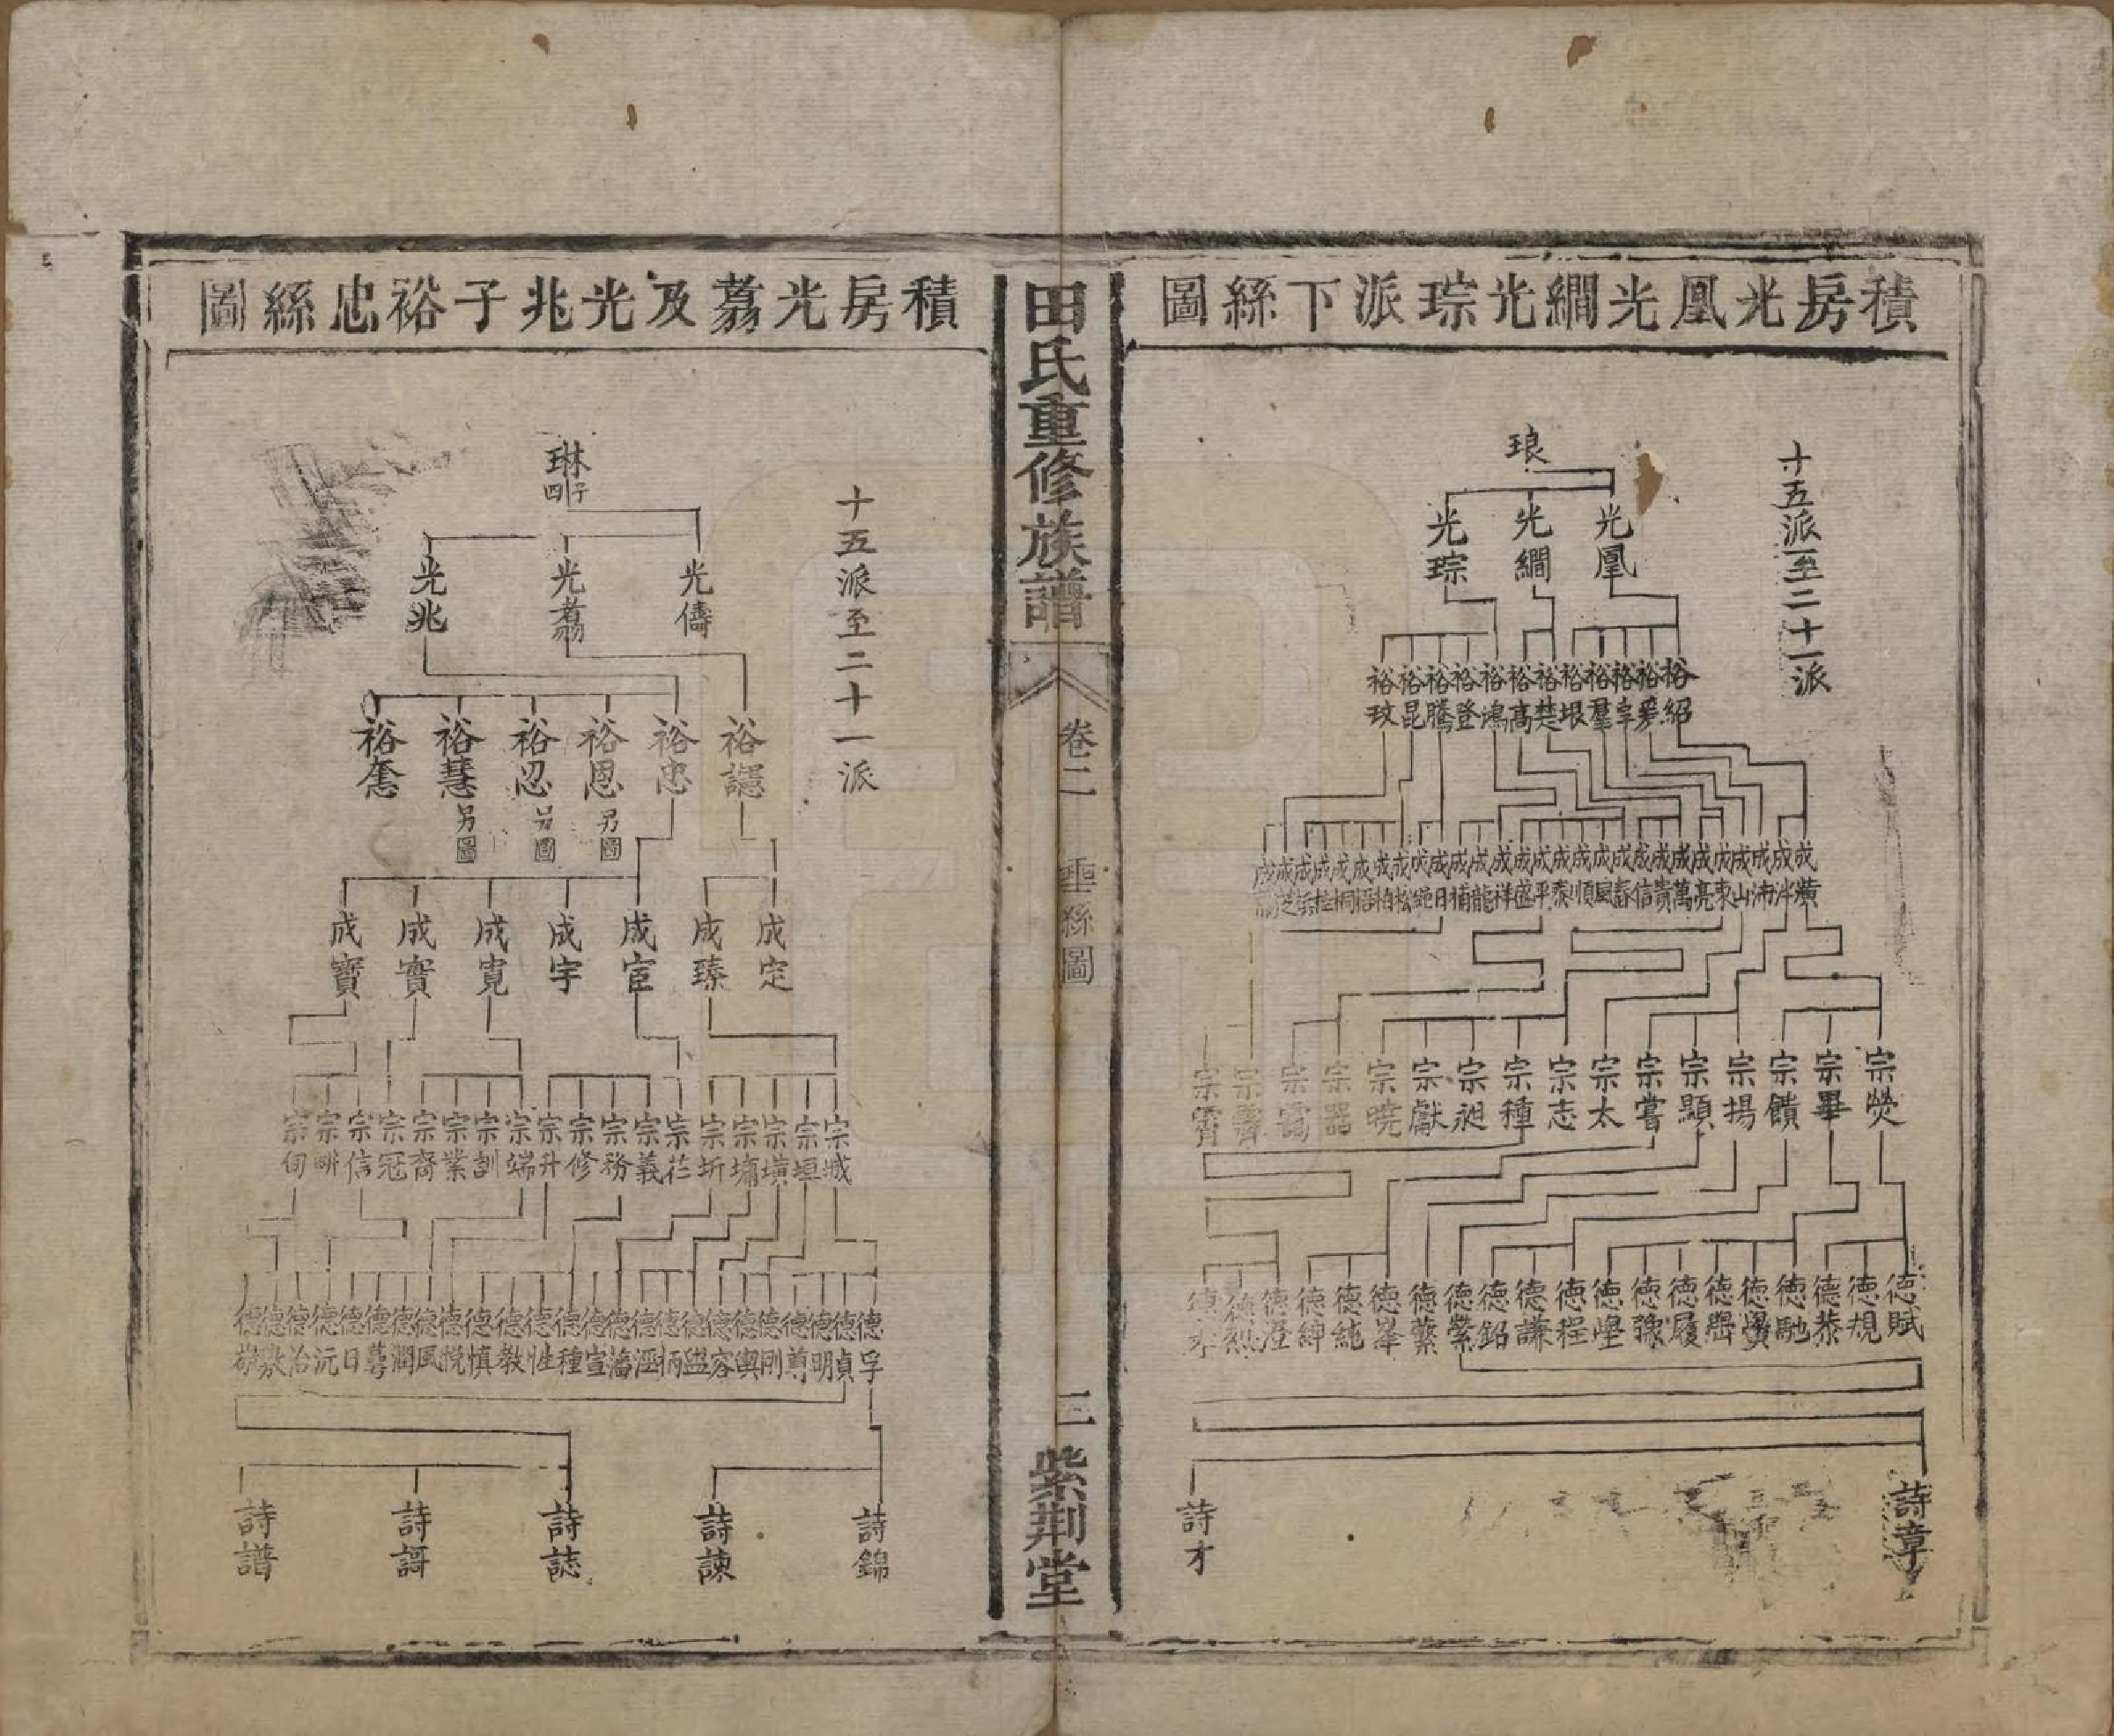 積房光凰光繝光琮派下縣圖
十五派至二十一派
琅
光凰 光繝 光琮
裕紹 裕爰 裕宰 裕羣 裕垠 裕楚 裕高 裕鴻 裕登 裕騰 裕昆 裕玟
成璜 成泮 成沛 成山 成東 成亮 成萬 成貴 成信 成春 成風 成順 成泰 成平 成盛 成祥 成龍 成楠 成日 成絕 成松 成柏 成梧 成桐 成桂 成宗 成芝 成
宗熒 宗畢 宗饋 宗揚 宗顯 宗嘗 宗太 宗志 宗種 宗昶 宗獻 宗曉 宗器 宗靄 宗霽 宗霄
德賦 德規 德恭 德馳 德黌 德嚳 德履 德豫 德堂 德程 德謙 德銘 德縈 德蘩 德峯 德純 德紳 德澄 德烈 德
詩章 詩才
田氏重修族譜
卷二 垂縣圖
三 紫荆堂
積房光蒭及光兆子裕忠縣圖
十五派至二十一派
琳 四子
光儔 光蒭 光兆
裕謳 裕忠 裕恩另圖 裕忍另圖 裕慧另圖 裕憲
成定 成臻 成宦 成宇 成寬 成實 成寶
宗城 宗垣 宗墴 宗墉 宗圻 宗芢 宗義 宗務 宗修 宗升 宗端 宗訓 宗業 宗裔 宗冠 宗信 宗畊 宗甸
德孚 德貞 德明 德尊 德刚 德輿 德容 德盥 德柄 德涇 德藩 德宣 德種 德性 德教 德慎 德悅 德風 德潤 德蕚 德日 德沅 德治 德敦 德敬
詩錦 詩諫 詩誌 詩謌 詩譜